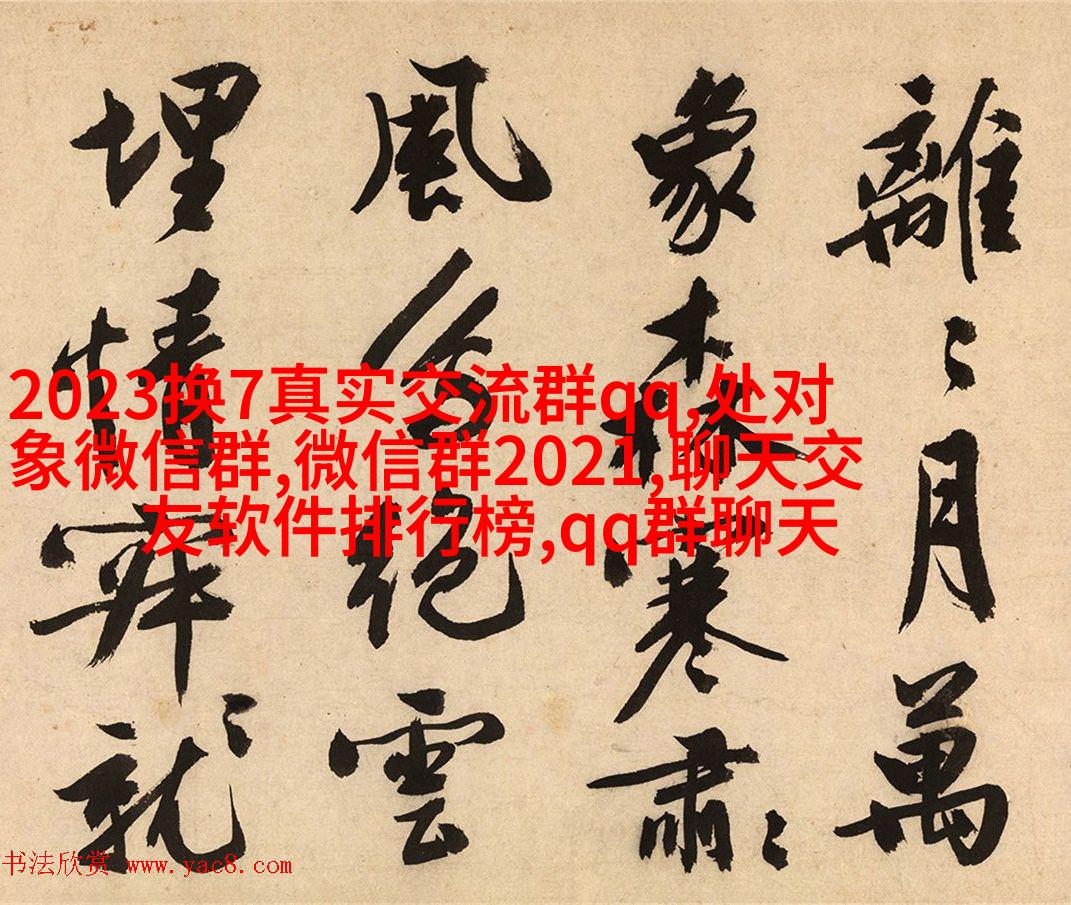 離〻月萬
象森寒肅〻
風絕雲
埋情就〻
2023换7真实交流群qq,处对
象微信群,微信群2021,聊天交
友软件排行榜,qq群聊天
书法欣赏 www.yac8.com